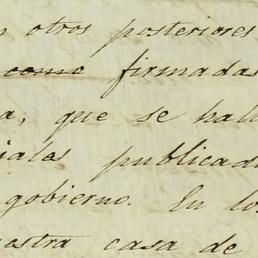 n otros posteriores
como firmadas
a, que se hal
iales publicad
gobierno. En lo
estra casa de